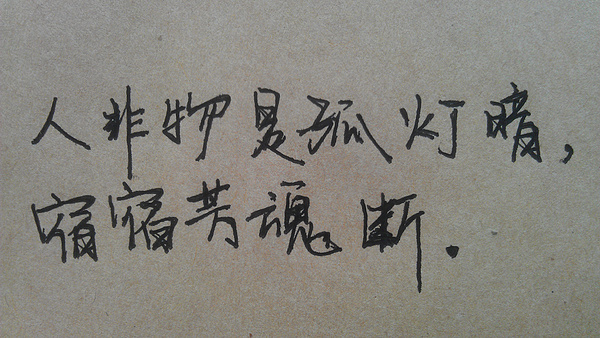 人非物是孤灯暗,
宿宿芳魂断.